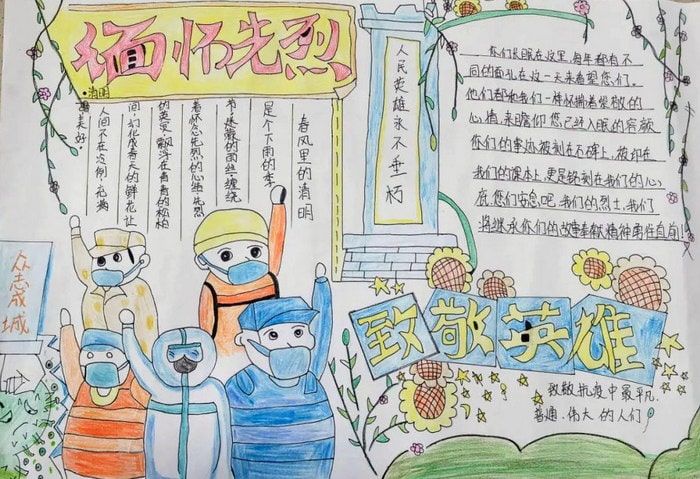 缅怀先烈
•清明
春风里的清明
是个下雨的季
节,微微的雨丝缠绕
着怀念先烈的心绪,先烈
的英灵飘浮在青青的松柏
间,幻化成春天的鲜花让
人间不在凉,充满
着美好
人民英雄永不垂朽
你们长眠在这里,每年都有不
同的面孔在这一天来看望您们。
他们都和我们一样怀揣着崇敬的
心情,来瞻仰您已经入眠的容颜
你们的事迹被刻在石碑上,被印在
我们的课本上,更是铭刻在我们的心
底,您们安息吧,我们的烈士,我们
将继承你们的故事奉献精神勇往直前!
众志成城
致敬英雄
致敬抗疫中最平凡.
普通.伟大的人们